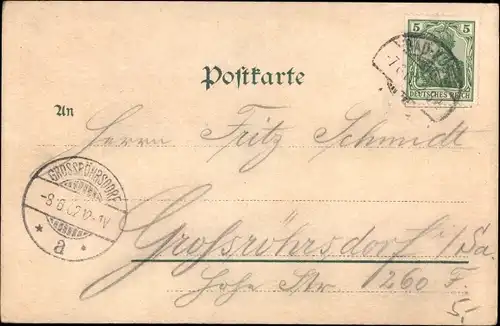 5 5
DEUTSCHES REICH
Postkarte
An
Herrn Fritz Schmidt
GROSSRÖHRSDORF
-8 6 02 12-1V
* a *
Grossröhrsdorf i/Sa.
Hohe Str. 260 F.
5.-